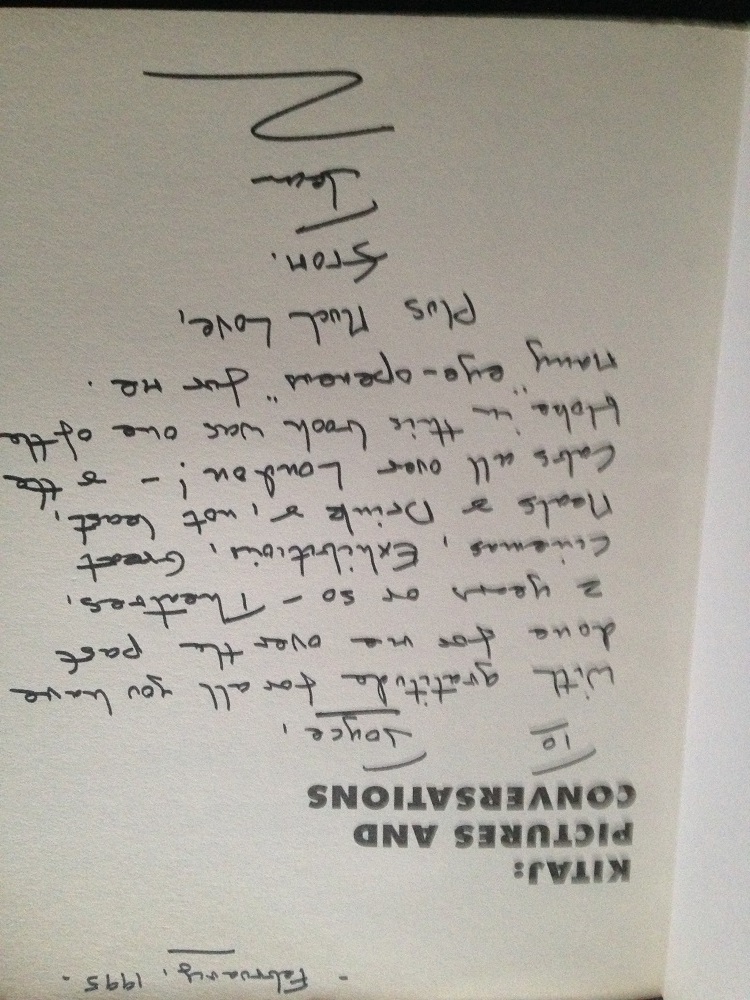 - February, 1995 -
KITAJ:
PICTURES AND
CONVERSATIONS
To Joyce,
with gratitude for all you have
done for me over the past
2 years or so - Theatres,
Cinemas, Exhibitions, Great
Meals & Drink &, not least,
Cabs all over London! - & the
in this book was one of the
many "eye-openers" for me.
Plus Much Love,
from.